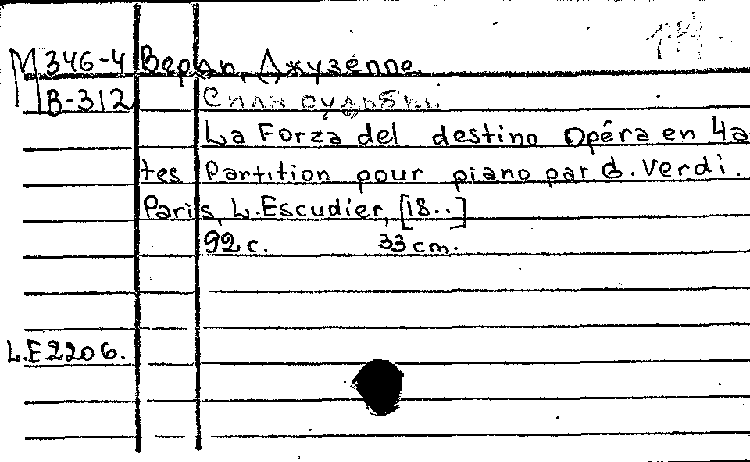 М 346-4 Верди, Джузеппе
В-312 Сила судьбы
La Forza del destino Opéra en 4 a
tes Partition pour piano par G. Verdi.
Paris, L. Escudier, [18..]
92 с. 33 cm.
L.E 2206.